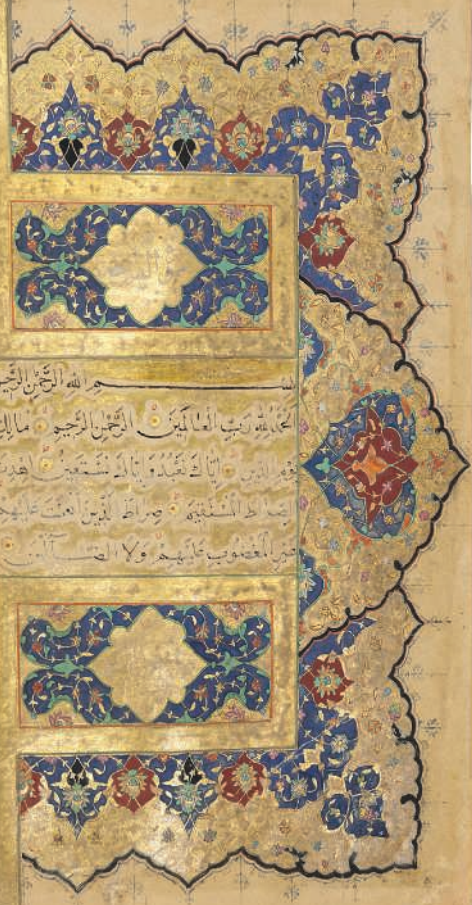 بسم الله الرَّحْمٰنِ الرَّحِيمِ
الْحَمْدُ لِلّٰهِ رَبِّ الْعَالَمِينَ الرَّحْمٰنِ الرَّحِيمِ مَالِكِ
يَوْمِ الدِّينِ اِيَّاكَ نَعْبُدُ وَاِيَّاكَ نَسْتَعِينُ اِهْدِنَا
الصِّرَاطَ الْمُسْتَقِيمَ صِرَاطَ الَّذِينَ اَنْعَمْتَ عَلَيْهِمْ
غَيْرِ الْمَغْضُوبِ عَلَيْهِمْ وَلَا الضَّالِّينَ